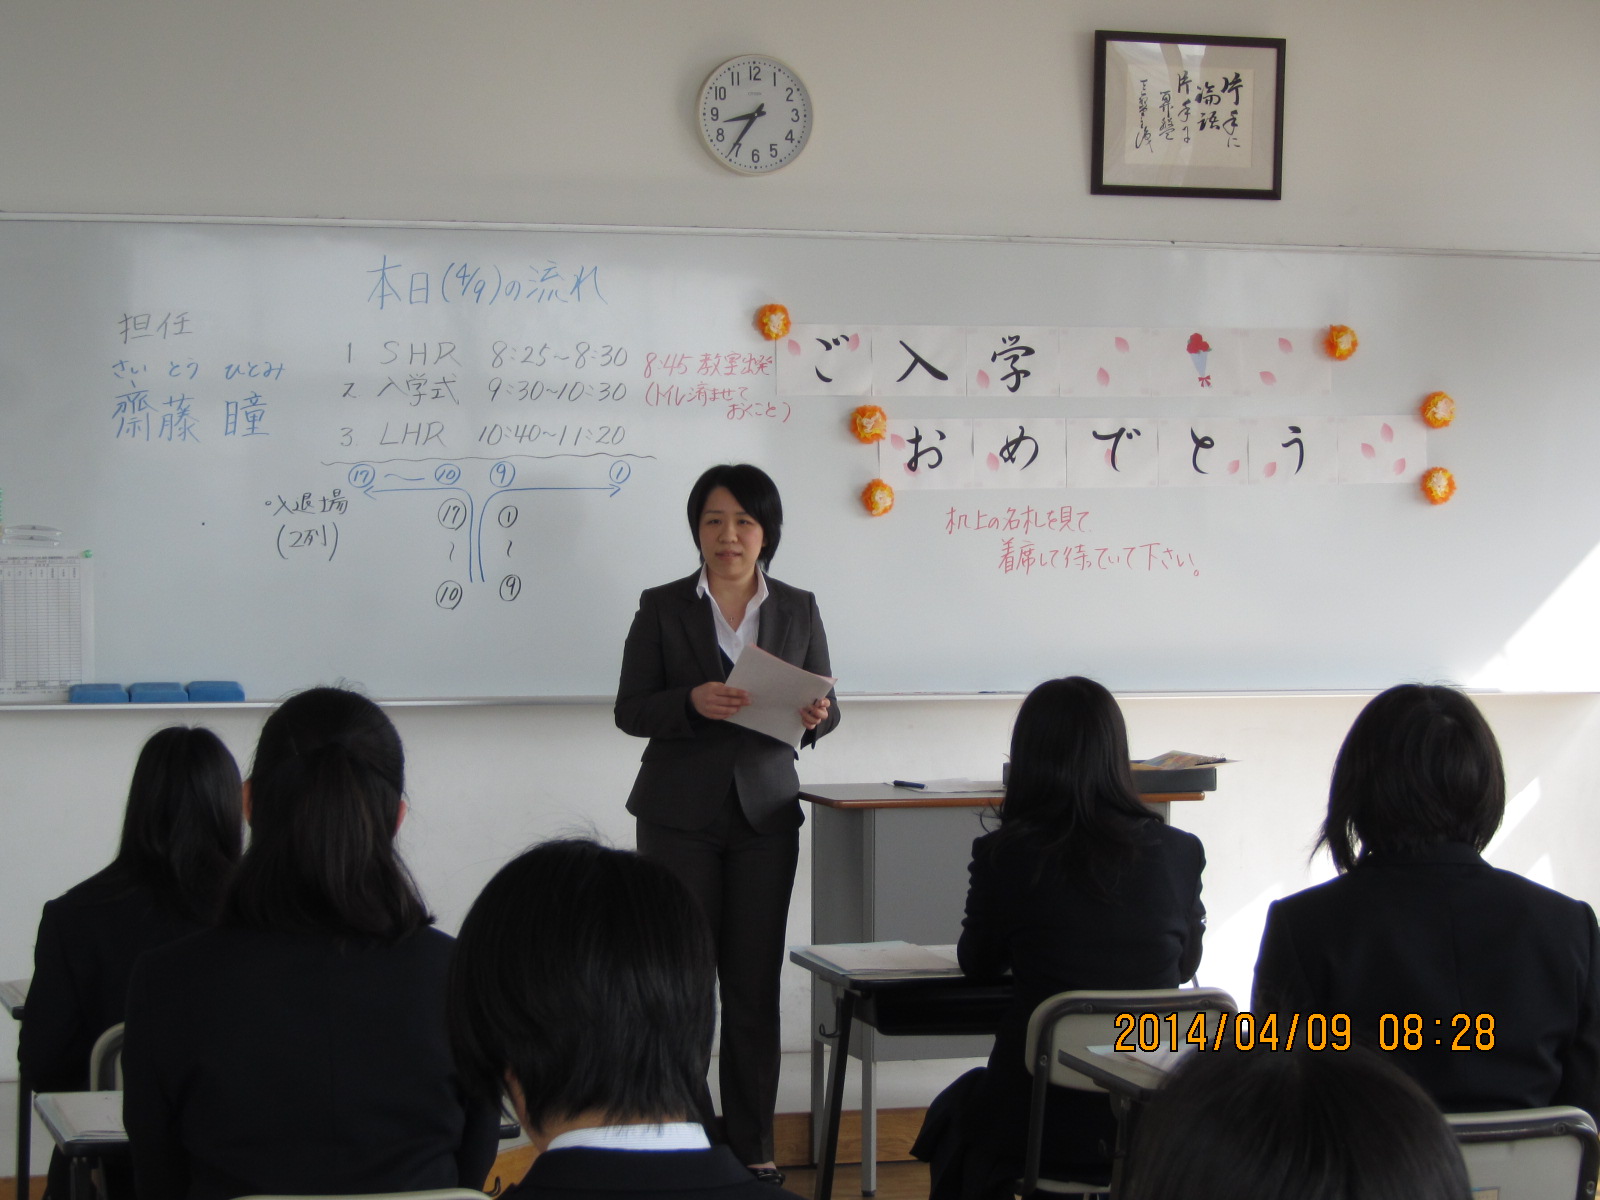 12 1 2 3 4 5 6 7 8 9 10 11
片手に
論語
片手に
算盤
本日(4/9)の流れ
担任
さい とう ひとみ
齋藤 瞳
1 SHR 8:25~8:30
2. 入学式 9:30~10:30
3. LHR 10:40~11:20
8:45 教室出発
(トイレ済ませて
おくこと)
⑰~⑩ ⑨ ①
入退場
(2列)
⑰ ①
~ ~
⑩ ⑨
ご入学
おめでとう
机上の名札を見て
着席して待っていて下さい。
2014/04/09 08:28